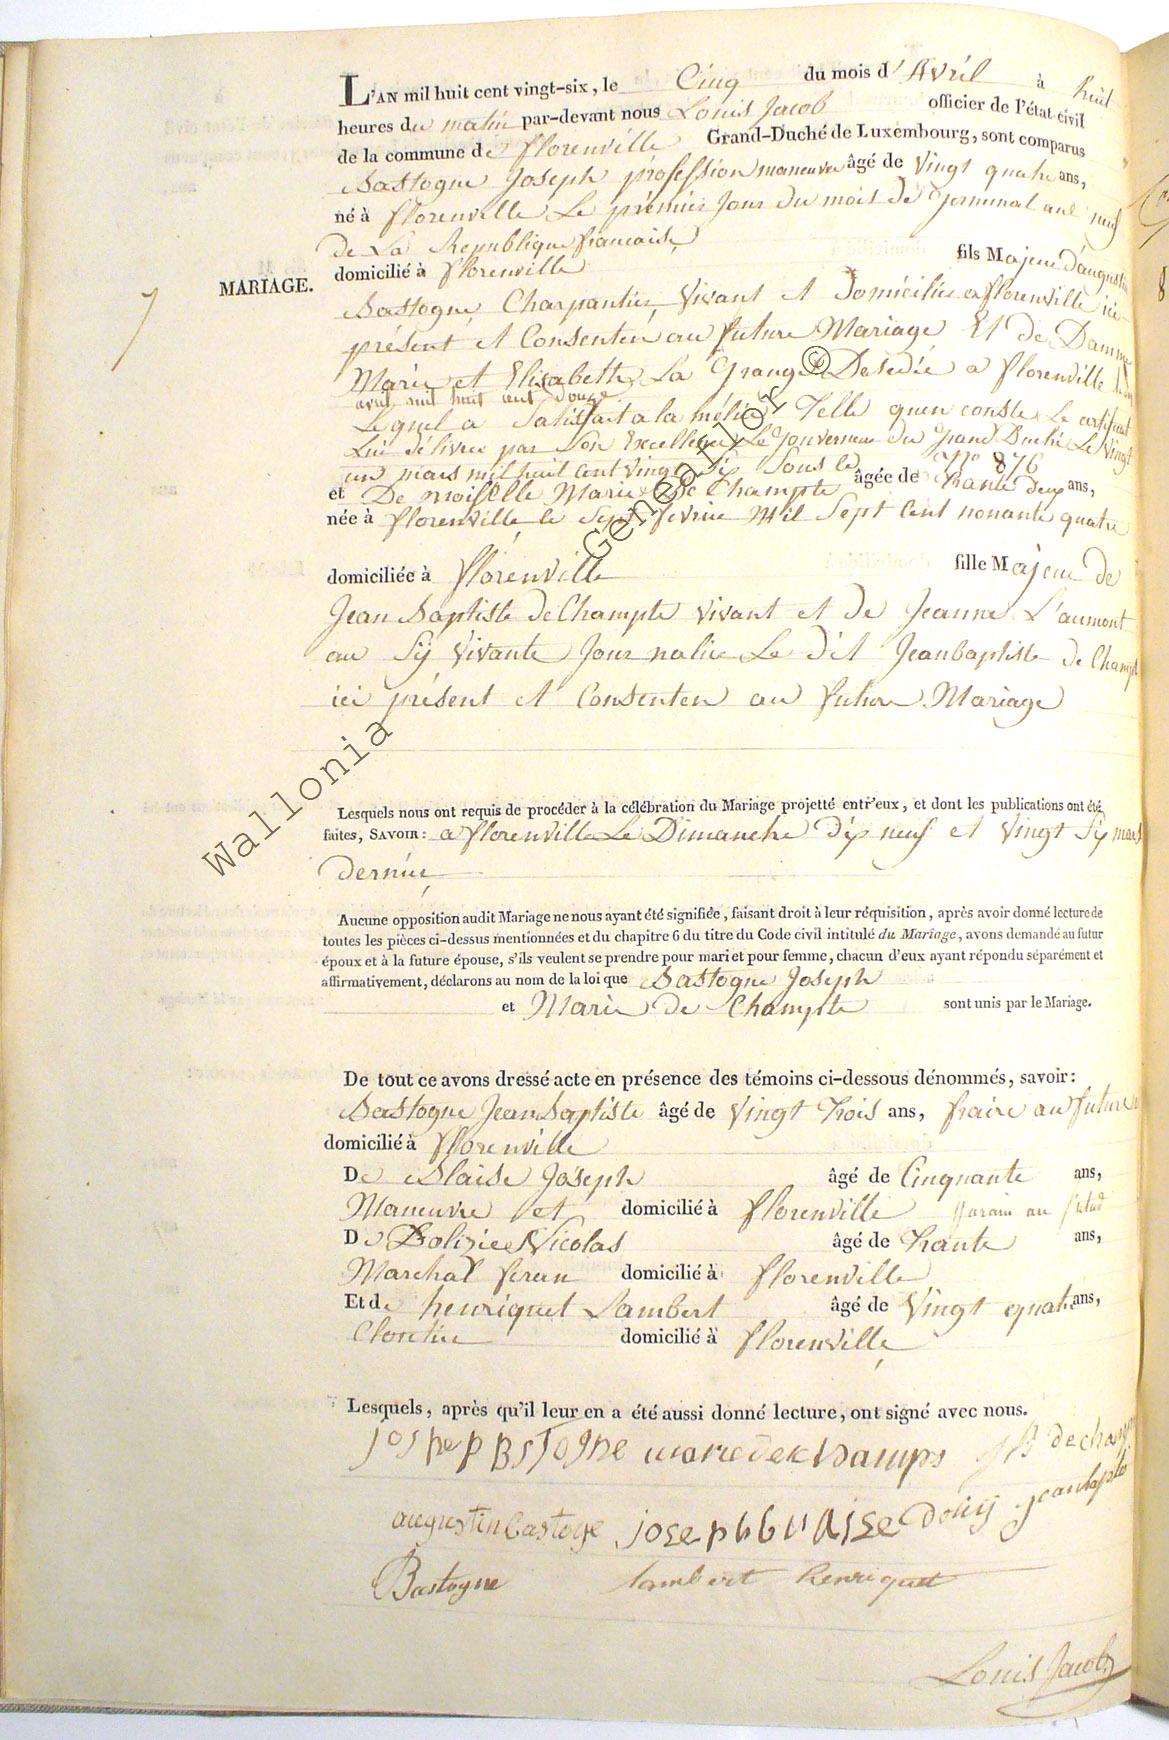 L'AN mil huit cent vingt-six, le Cinq du mois d'Avril à huit
heures du matin par-devant nous Louis Jacob officier de l'état-civil
de la commune de florenville Grand-Duché de Luxembourg, sont comparus
Bastogne Joseph profession maneuvre âgé de vingt quatre ans,
né à florenville Le premier Jour du mois de Germinal ane neuf
de La Republique francaise
domicilié à florenville fils Majeur d'augustin
MARIAGE.
7
Bastogne Charpantier, Vivant et Domicilié a florenville ici
présent et Consenten au future Mariage Et de Damme
Marie et Elisabeth La Grange Desedée a florenville
avril mil huit cent douze
Lequel a Satisfait a la mélice Telle quen conste Le certificat
Lui délivré par Son Excellence Le Gouverneur du Grand Duché Le Vingt
un mars mil huit cent vingt Six Sous le N° 876
et De moiselle Marie De Champte âgée de trante deux ans,
née à florenville le Sept fevrier Mil Sept Cent nonante quatre
domiciliée à florenville fille Majeur de
Jean Baptiste de Champte vivant et de Jeanne L'aumont
au Sij Vivante Journalier Le dit Jeanbaptiste de Champt
ici présent et Consenten au future Mariage
Lesquels nous ont requis de procéder à la célébration du Mariage projetté entr'eux, et dont les publications ont été
faites, SAVOIR: a florenville Le Dimanche dix neuf et Vingt Six mars
dernier
Aucune opposition audit Mariage ne nous ayant été signifiée, faisant droit à leur réquisition, après avoir donné lecture de
toutes les pièces ci-dessus mentionnées et du chapitre 6 du titre du Code civil intitulé du Mariage, avons demandé au futur
époux et à la future épouse, s'ils veulent se prendre pour mari et pour femme, chacun d'eux ayant répondu séparément et
affirmativement, déclarons au nom de la loi que Bastogne Joseph
et Marie De Champte sont unis par le Mariage.
De tout ce avons dressé acte en présence des témoins ci-dessous dénommés, savoir:
Bastogne Jean Baptiste âgé de Vingt trois ans, fraire au future
domicilié à florenville
De Blaise Joseph âgé de Cinquante ans,
Maneuvre et domicilié à florenville parain au futud
De Dolizie Nicolas âgé de trante ans,
Marchal feran domicilié à florenville
Et de henriquet Lambert âgé de Vingt quatre ans,
Cloretier domicilié à florenville
Lesquels, après qu'il leur en a été aussi donné lecture, ont signé avec nous.
Joshep BSTOGNE marie dechamps JB decham
augustin bastoge joseph bLAISe Dolizij jeanbaptis
Bastogne lambert henriquet
Louis Jacob
Wallonia Geneallor ©